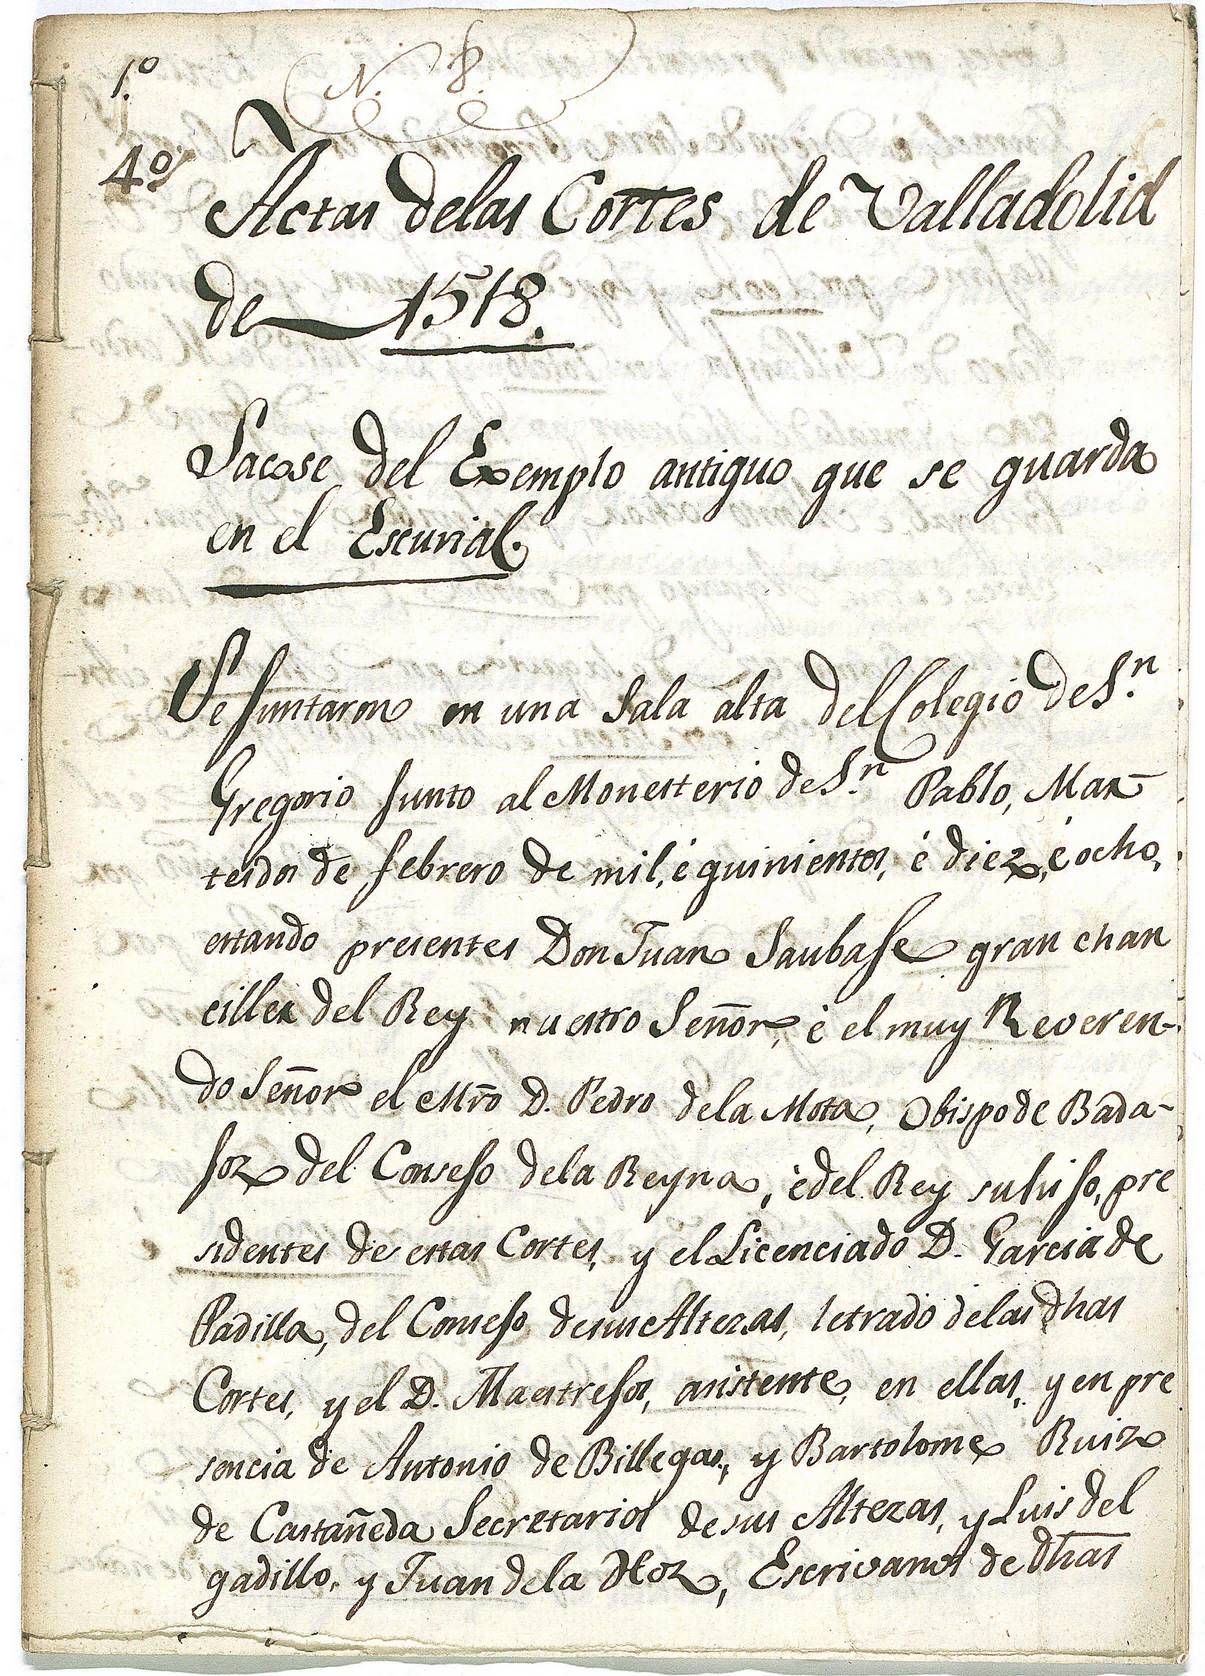 1.º
N. 8.
4º
Actas delas Cortes de Valladolid
de 1518.
Sacose del Exemplo antiguo que se guarda
en el Escurial.
Se juntaron en una sala alta del Colegio de S.n
Gregorio junto al Monesterio de S.n Pablo, Mar-
tesdos de febrero de mil, é quinientos, é diez, é ocho,
estando presentes Don Juan Saubaje gran chan
ciller del Rey nuestro Señor, é el muy Reveren-
do Señor el Mrõ D. Pedro dela Mota, Obispo de Bada-
joz del Consejo dela Reyna, é del Rey su hijo, pre
sidentes de estas Cortes, y el Licenciado D. Garcia de
Padilla, del Consejo desus Altezas, letrado delas dhas
Cortes, y el D. Maestrejos, asistente, en ellas, y en pre
sencia de Antonio de Billegas, y Bartolome Ruiz
de Castañeda Secretarios desus Altezas, y Luis del
gadillo, y Juan dela Hoz, Escrivanos de dhas